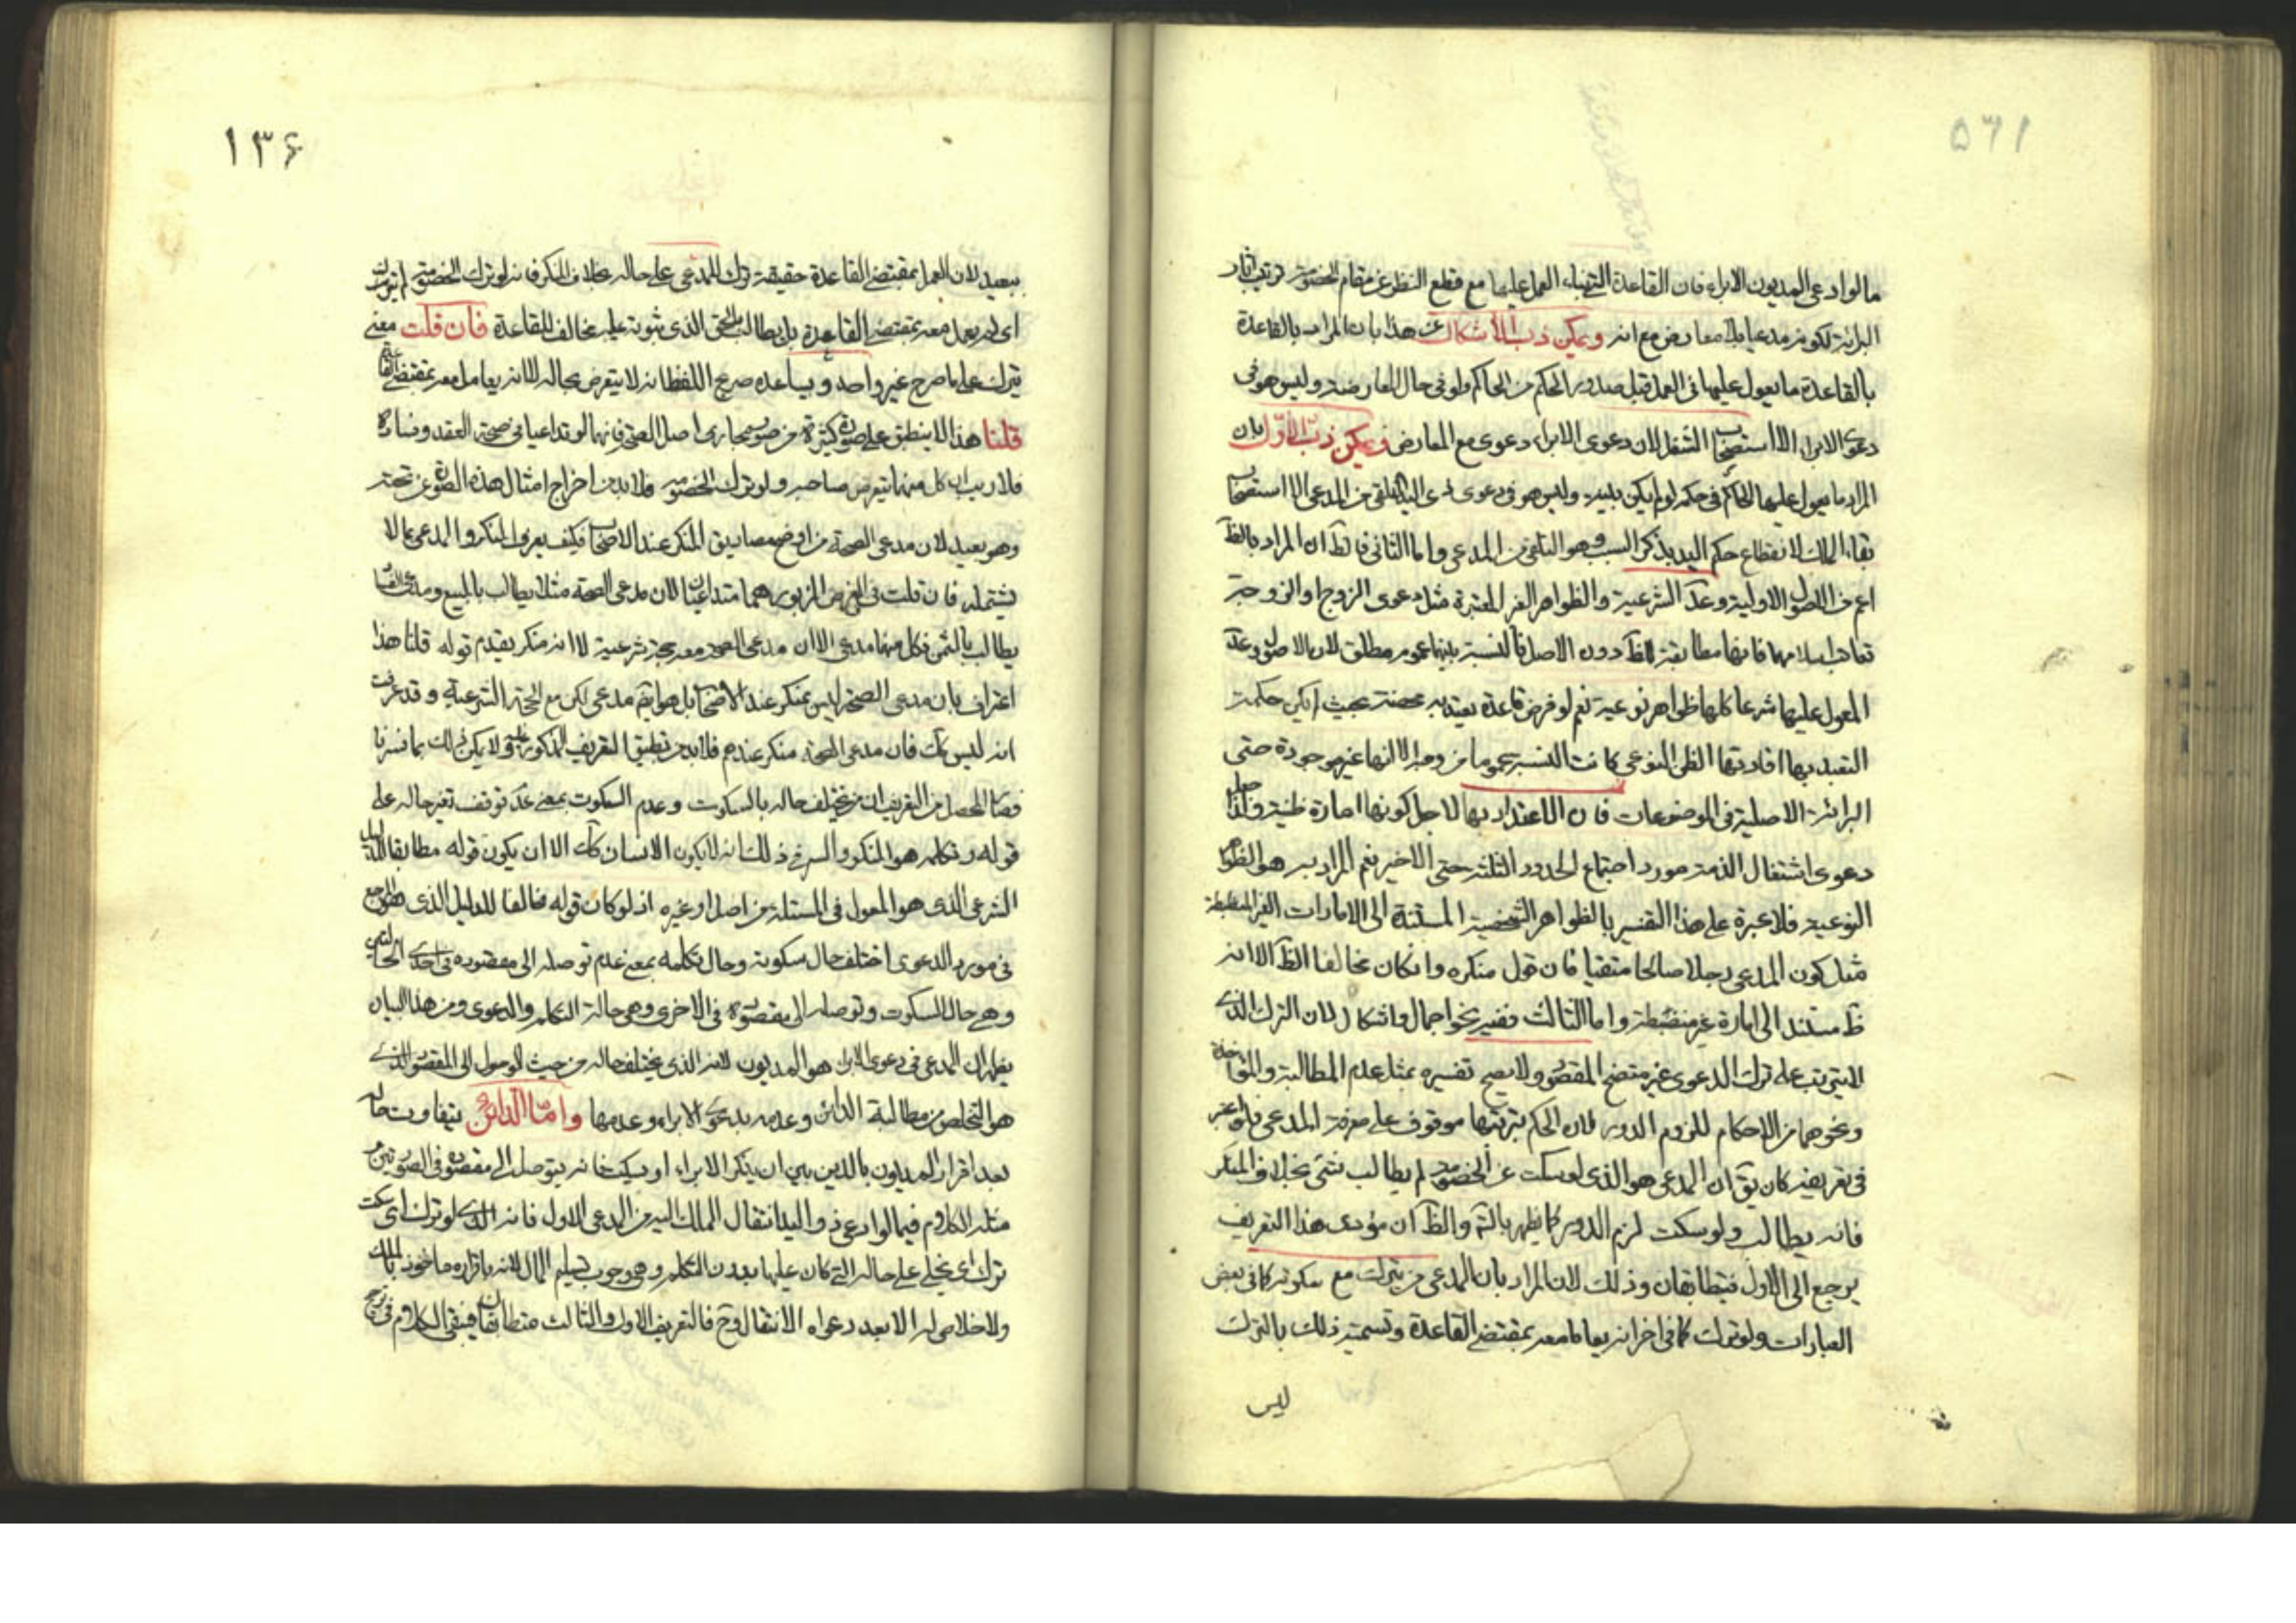 مالوادعى المديون الابراء فان القاعدة التى بناء العمل عليها مع قطع النظر عن مقام الخصومة ترتيب آثار
البرائة لكونه مدعيا بلا معارض مع انه ويمكن ذب الاشكال عن هذا بان المراد بالقاعدة
بالقاعدة ما يعول عليها فى العمل قبل صدور الحكم من الحاكم ولو فى حال المعارضة وليس هو فى
دعوى الابراء الا استصحاب الشغل لان دعوى الابراء دعوى مع المعارض ويمكن ذب الاول بان
المراد ما يعول عليها الحاكم فى حكمه لو لم يكن بينة وليس هو فى دعوى ذى اليد التلقى من المدعى الا استصحاب
بقاء الملك لانقطاع حكم اليد بذكر السبب وهو التلقى من المدعى واما الثانى فالظ ان المراد بالظ
اعم من الاصول الاولية وعد الشرعية والظواهر الغير المعتبرة مثل دعوى الزوج او الزوجة
تعاقب اسلامهما فانها مطابقة للظ دون الاصل فالنسبة بينهما عموم مطلق لان الاصول وعد
المعول عليها شرعا كلها ظواهر نوعية نعم لو فرض قاعدة تعبديه محضة بحيث لم يكن حكمة
التعبد بها افادتها الظن النوعى كانت النسبة عموما من وجه الا انها غير موجودة حتى
البرائة الاصلية فى الموضوعات فان الاعتداد بها لاجل كونها امارة ظنية ولذا جعل
دعوى اشتغال الذمة مورد اجتماع الحدود الثلثة حتى الاخير نعم المراد به هو الظواهر
النوعية فلا عبرة على هذا التفسير بالظواهر الشخصية المستندة الى الامارات الغير المنضبطة
مثل كون المدعى رجلا صالحا متقيا فان قول منكره وان كان مخالفا الظ الا انه
ظ مستند الى امارة غير منضبطة واما الثالث ففيه نحو اجمال واشكال لان الترك الذى
لا يترتب على ترك الدعوى غير متضح المقصود ولا يصح تفسيره بمثل عدم المطالبة والمؤاخذة
ونحوهما من الاحكام للزوم الدور لان الحكم بترتبها موقوف على معرفة المدعى فلو اعتبر
فى تعريفه كان يق ان المدعى هو الذى لو سكت عن الخصومة لم يطالب بشئ بخلاف المنكر
فانه يطالب ولو سكت لزم الدور كما يظهر بالتم والظ ان مؤدى هذا التعريف
يرجع الى الاول فيتطابقان وذلك لان المراد بان المدعى من يترك مع سكوته كما فى بعض
العبارات ولو ترك كما فى اخر انه يعامل معه بمقتضى القاعدة وتسمية ذلك بالترك
ليس
١٣۶
ببعيد لان العمل بمقتضى القاعدة حقيقة ترك للمدعى على حاله بخلاف المنكر فانه لو ترك الخصومة لم يترك
اى لم يعمل معه بمقتضى القاعدة بل يطالب بالحق الذى ثبوته عليه مخالف للقاعدة فان قلت معنى
يترك على ما صرح غير واحد ويساعده صريح اللفظ انه لا يتعرض بحاله لا انه يعامل معه بمقتضى القاعدة
قلنا هذا لا ينطبق على صورة كثيرة من صور مجارى اصل الصحة فانهما لو تداعيا فى صحة العقد وفساده
فلا ريب ان كل منهما يتعرض صاحبه ولو ترك الخصومة فلا بد من اخراج امثال هذه الصورة عن تحته
وهو بعيد لان مدعى الصحة من اوضح مصاديق المنكر عند الاصحاب فكيف يعرف المنكر والمدعى بما لا
يشتمله فان قلت فى الفرض المزبور هما متداعيان لان مدعى الصحة مثلا يطالب بالمبيع ومدعى الفساد
يطالب بالثمن فكل منهما مدعى الا ان مدعى الصحة معه حجة شرعية لا انه منكر يقدم قوله قلنا هذا
اعتراف بان مدعى الصحة ليس بمنكر عند الاصحاب بل هو ايضا مدعى لكن مع الحجة الشرعية وقد عرفت
انه ليس كك فان مدعى الصحة منكر عندهم فلا بد من تطبيق التعريف المذكور عليه ولا يكن ذلك بما فسرنا
فصار المحصل من التعريف ان من يختلف حاله بالسكوت وعدم السكوت بمعنى عد توقف تغير حاله على
قوله وتكلمه هو المنكر والسر فى ذلك انه لا يكون الانسان كك الا ان يكون قوله مطابقا للدليل
الشرعى الذى هو المعول فى المسئلة من اصل او غيره اذ لو كان قوله مخالفا للدليل الذى هو المرجع
فى مورد الدعوى اختلف حال سكوته وحال تكلمه بمعنى عدم توصله الى مقصوده فى احدى الحالتين
وهى حال السكوت وتوصله الى مقصوده فى الاخرى وهى حالة التكلم والدعوى ومن هذا البيان
يظهر ان المدعى فى دعوى الابراء هو المديون لانه الذى يختلف حاله من حيث الوصول الى المقصود الذى
هو التخلص من مطالبة الدائن وعدمه بدعوى الابراء وعدمها واما الدائن فلا يتفاوت حاله
بعد اقرار المديون بالدين بين ان ينكر الابراء او يسكت فانه يتوصل الى مقصوده فى الصورتين و
مثله الكلام فيما لو ادعى ذو اليد انتقال الملك اليه من المدعى الاول فانه الذى لو ترك اى سكت
ترك اى يخلى على حاله التى كان عليها بدون التكلم وهى وجوب تسليم المال لانه باقراره ماخوذ بالملك
ولا خلاص له الا بعد دعواه الانتقال وح فالتعريف الاول والثالث متطابقان فيبقى الكلام فى